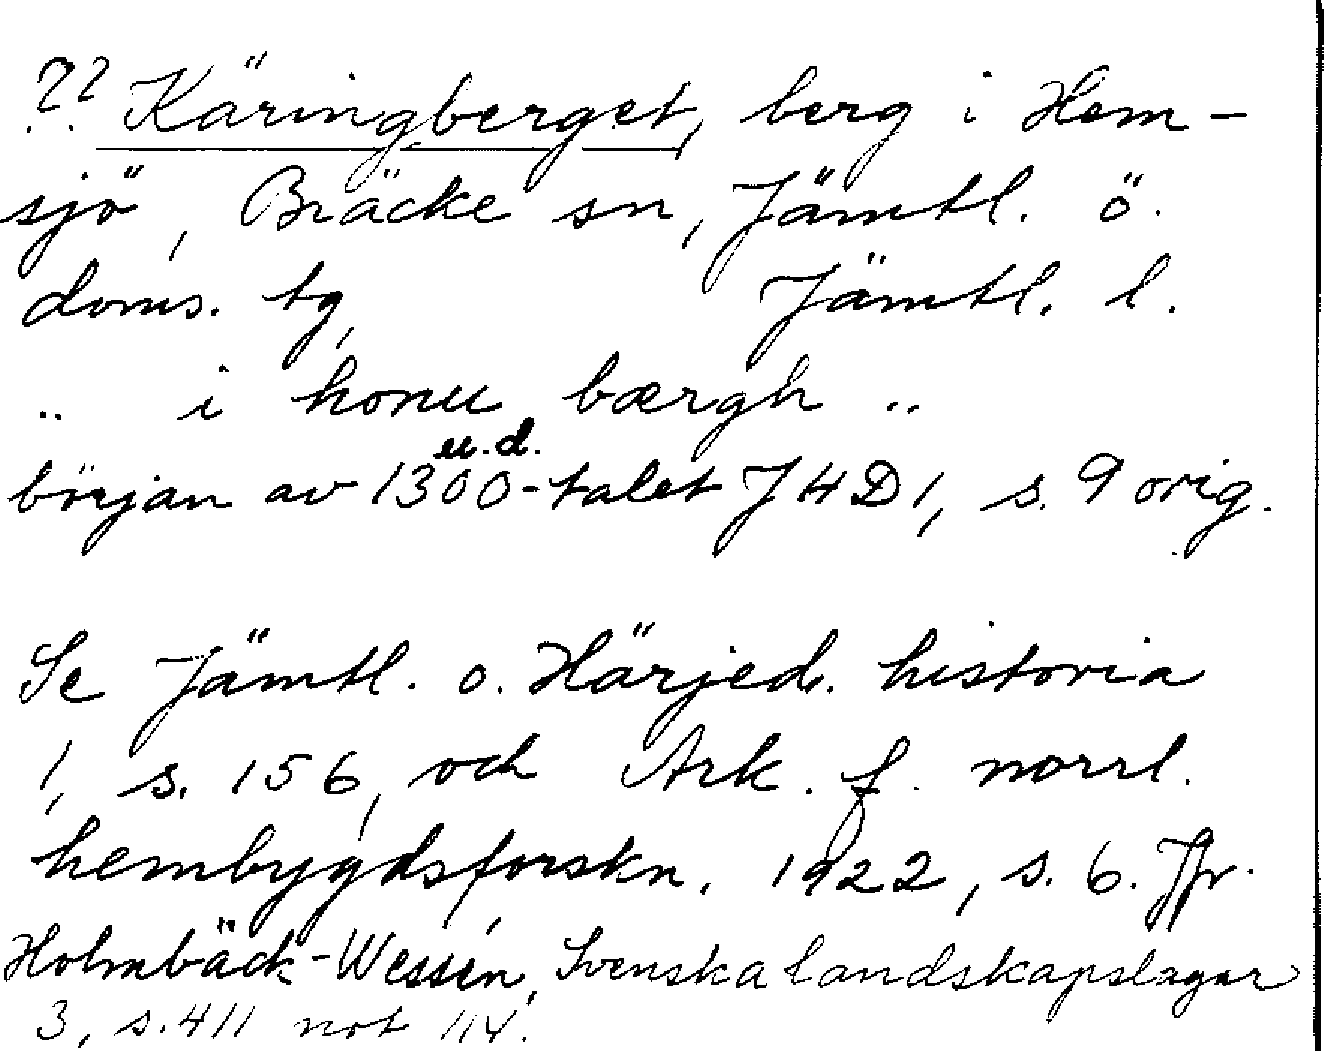 ?? Käringberget, berg i Hem-
sjö, Bräcke sn, Jämtl. ö.
doms. tg, Jämtl. l.
.. i konu bærgh ..
u.d.
början av 1300-talet J4D1, s. 9 orig.
Se Jämtl. o. Härjed. historia
1, s. 156, och Ark. f. norrl.
hembygdsforskn. 1922, s. 6. Jfr.
Holmbäck-Wessén, Svenska landskapslagar
3, s. 411 not 114.